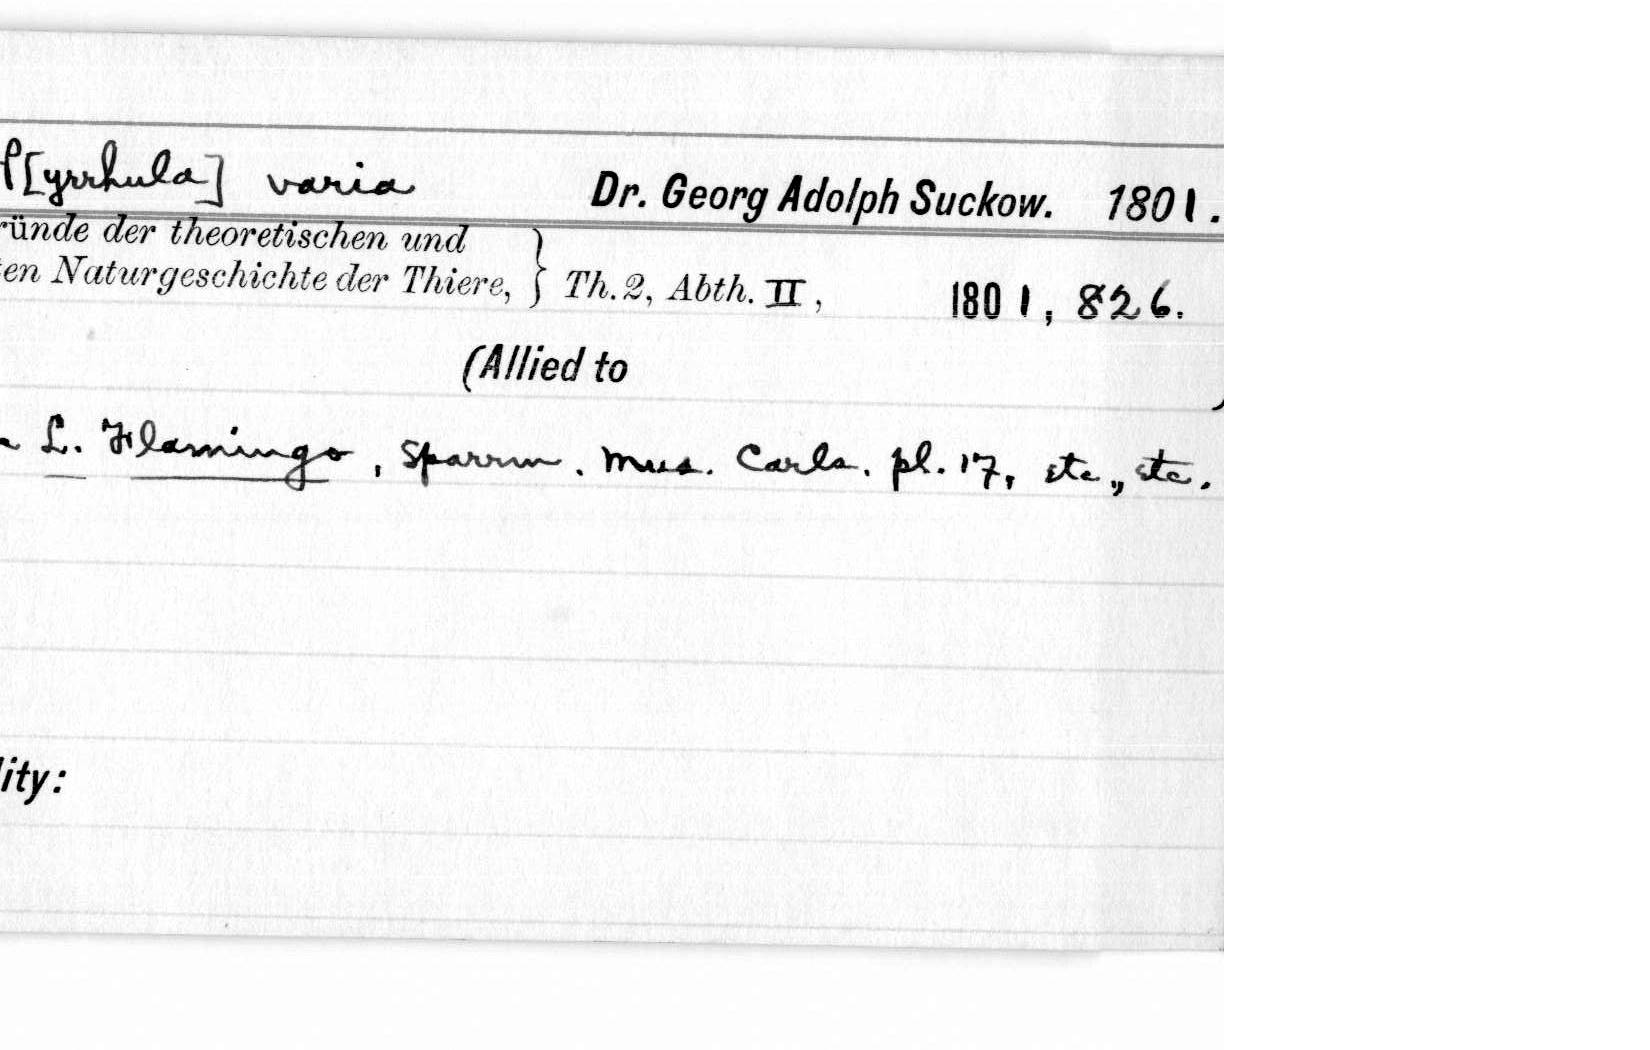 P[yrrhula] varia Dr. Georg Adolph Suckow. 1801.
ründe der theoretischen und
en Naturgeschichte der Thiere, } Th. 2, Abth. II, 1801, 826.
(Allied to )
L. Flamingo, Sparrm. Mus. Carls. pl. 17, etc., etc.
lity: